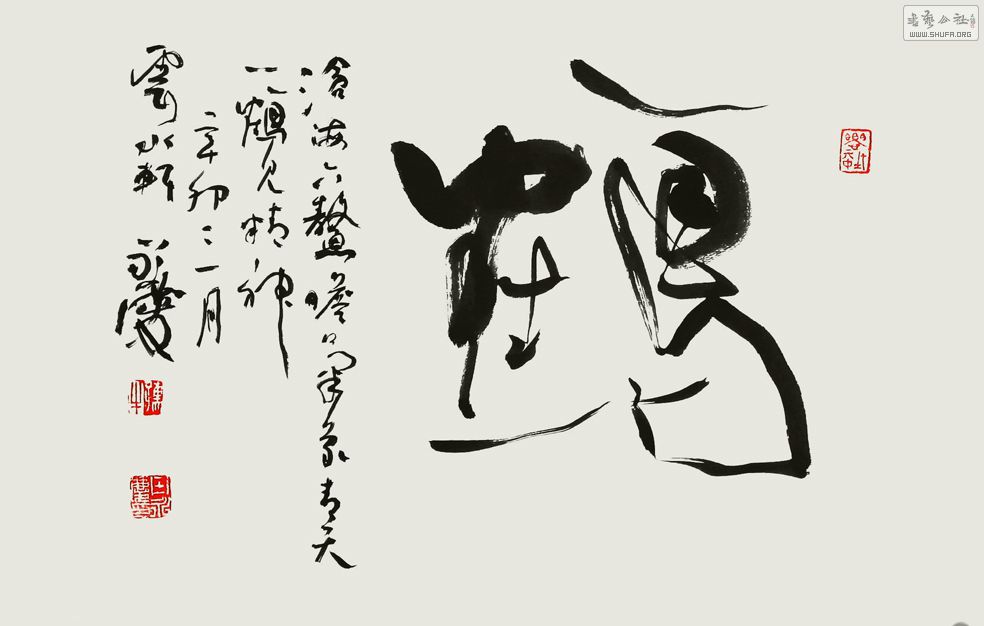 書藝公社
WWW.SHUFA.ORG
鶴
滄海六鰲瞻氣象青天
一鶴見精神
辛卯三月
雲水軒